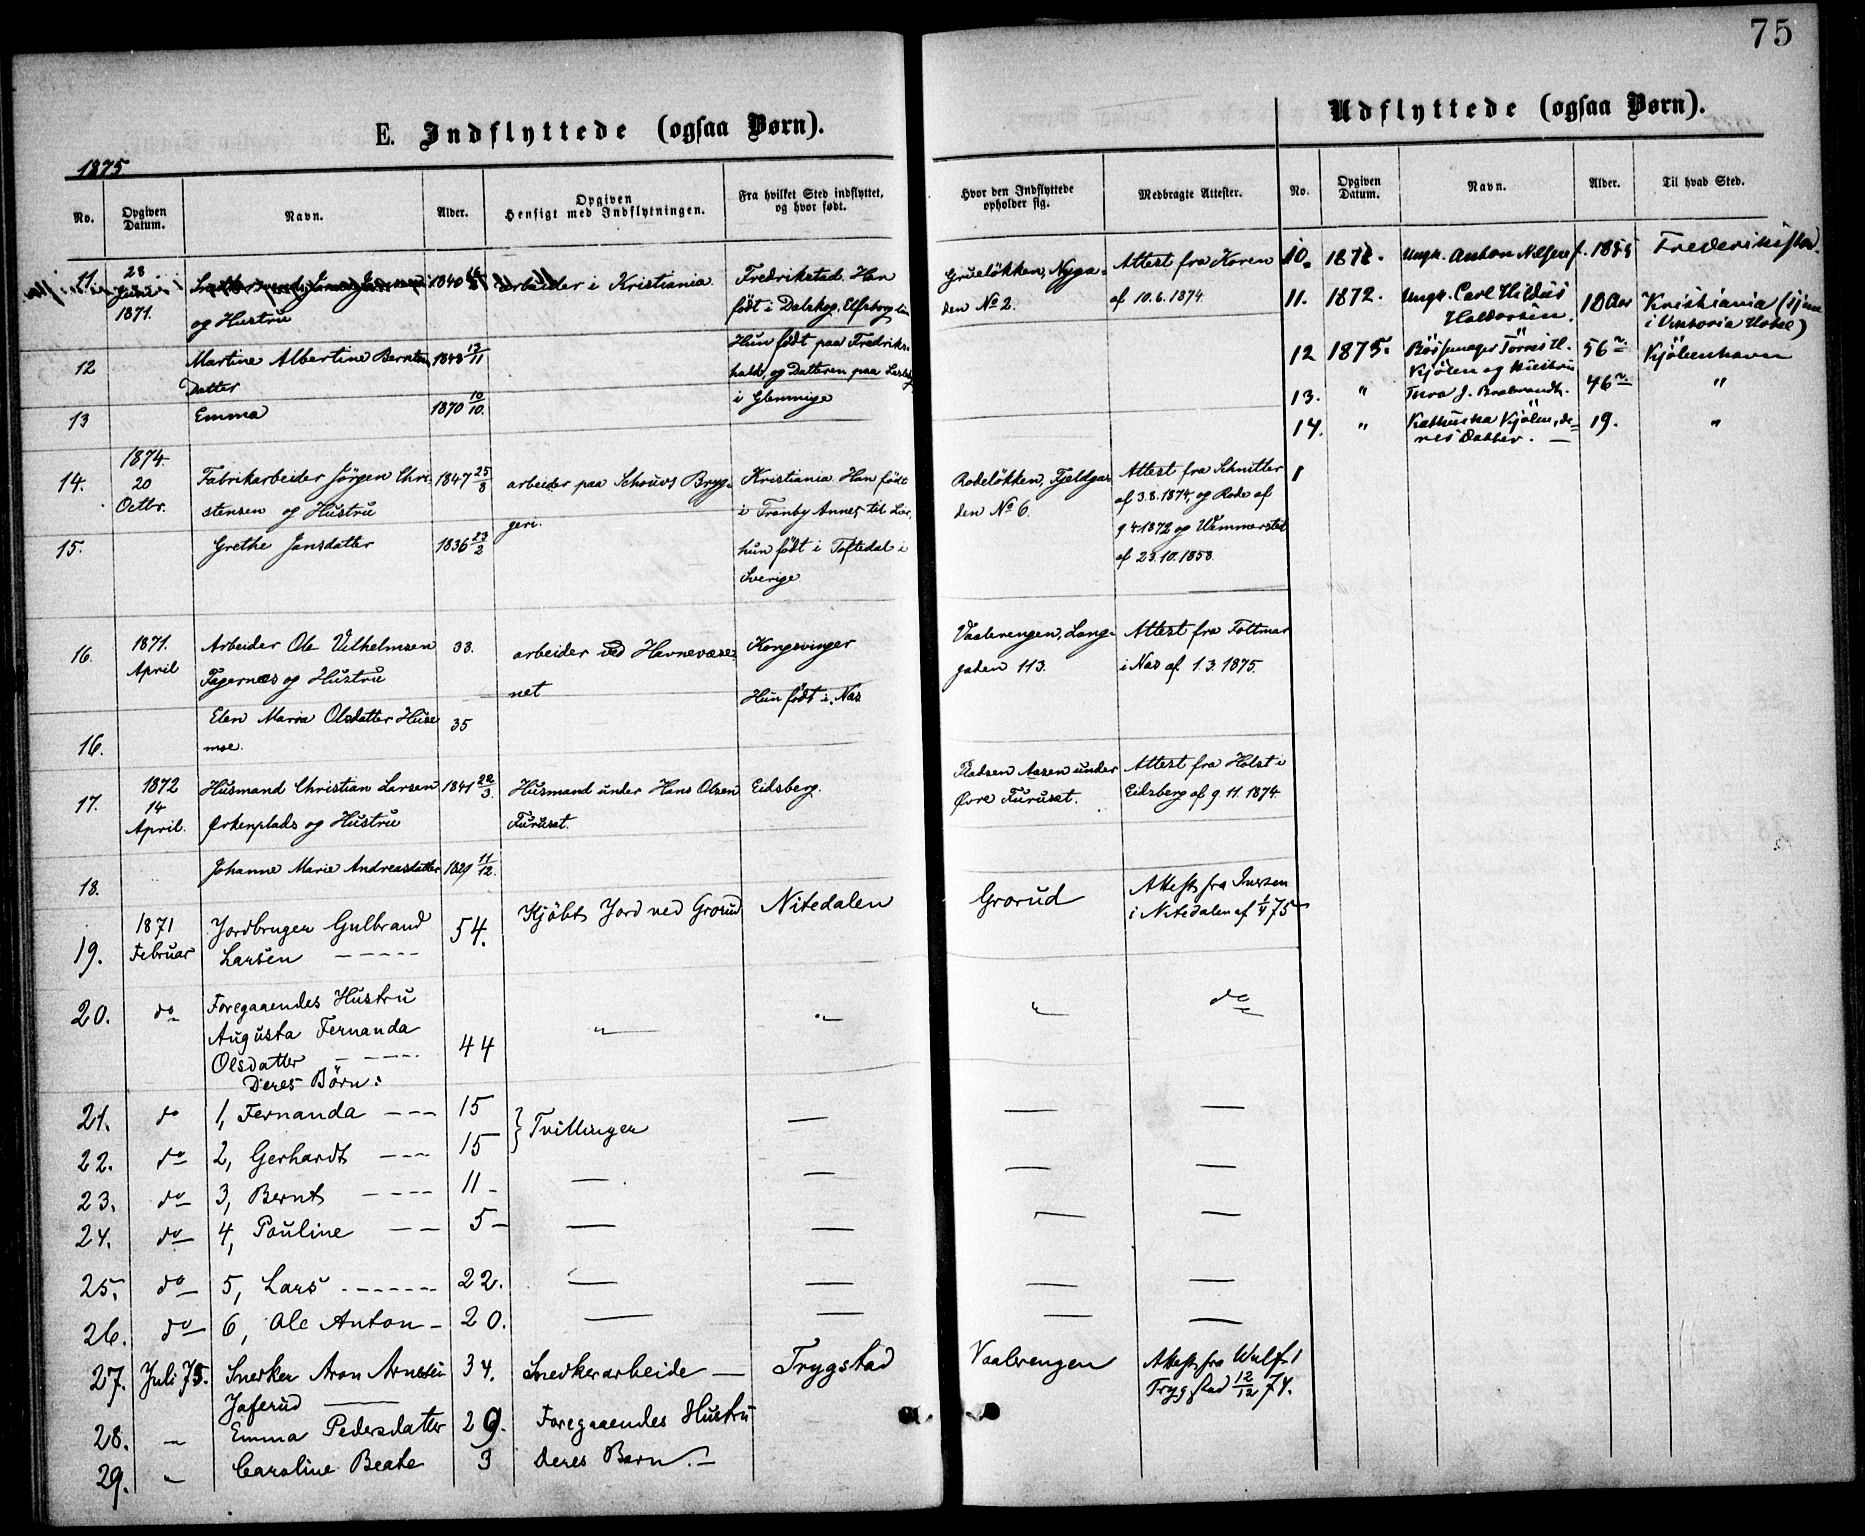 75
E. Indflyttede (ogsaa Børn).
Udflyttede (ogsaa Børn).
1875
No. Opgiven Datum. Navn. Alder. Opgiven Hensigt med Indflytningen. Fra hvilket Sted indflyttet, og hvor født. Hvor den Indflyttede opholder sig. Medbragte Attester. No. Opgiven Datum. Navn. Alder. Til hvad Sted.
11. 23 Juni 1871. og Hustru 1840 arbeider i Kristiania. Fredrikstad. Han født i Dalskog, Elfsborg Grueløkken, Nyga-
den No 2. Attest fra Horen
af 10.6.1874.
12 Martine Albertine Berntsen
Datter 1848 13/11 Hun født paa Fredriks-
hald, og Datteren paa
13 Emma 1870 10/10. i Glemmige
14. 1874. 20 Octbr. Fabrikarbeider Jørgen Chri-
stensen og Hustru 1847 25/8 arbeider paa Schouvs Bryg-
geri. Kristiania Han født
i Tranby Annex til Lier,
hun født i Toftedal i
Sverige Rodeløkken, Fjeldga-
den No 6. Attest fra Schnitler
af 3.8.1874, og Rode af
9.4.1872 og Wimmerstedt
af 23.10.1858.
15. Grethe Jansdatter 1836 23/2
16. 1871. April Arbeider Ole Vilhelmsen
Fagernæs og Hustru 33. arbeider ved Havnevæse-
net Kongsvinger
Hun født i Næs Vaalerengen, Lang-
gaden 113. Attest fra Foltmar
i Næs af 1.3.1875.
16. Elen Maria Olsdatter Huse
moe. 35
17. 1872 14 April. Husmand Christian Larsen
Ørkenplads og Hustru 1841 22/3. Husmand under Hans Olsen
Furuset. Eidsberg. Pladsen Aasen under
Øvre Furuset. Attest fra Holst i
Eidsberg af 9.11.1874.
18. Johanne Marie Andreasdatter 1829 11/12.
19. 1871 Februar Jordbruger Gulbrand
Larsen 54. Kjöbt Jord ved Grorud Nitedalen Grorud Attest fra Iversen
i Nitedalen af 1/4 75
20. do Foregaaendes Hustru
Augusta Fernanda
Olsdatter 44 " " " do
Deres Börn:
21. do 1, Fernanda 15 } Tvillinger — — —
22. do 2, Gerhardt 15 — — —
23. do 3, Bernt 11 — — — —
24. do 4, Pauline 5 — — — —
25. do 5, Lars 22. — — — —
26. do 6, Ole Anton 20. — — — —
27. Juli 75. Snedker Aron Arnesen
Jaferud 34. Snedkerarbeide Trygstad Vaalerengen Attest fra Wulf i
Trygstad 12/12 74.
28. " Emma Pedersdatter 29. Foregaaendes Hustru
29. " Caroline Beate 3 Deres Barn.
10. 187 . Ungk. Anton Nilsen f. 1855 Frederikstad.
11. 1872. Ungk. Carl Hildus
Haldorsen. 18 Aar Kristiania (tjene
i Victoria Hotel)
12 1875. Tönnes Tl.
Kjölen og Hustru 56 Kjöbenhavn
13. " Thora J. Brabrandt. 46 "
14. " Kathinka Kjölen, de-
res Datter. 19. "